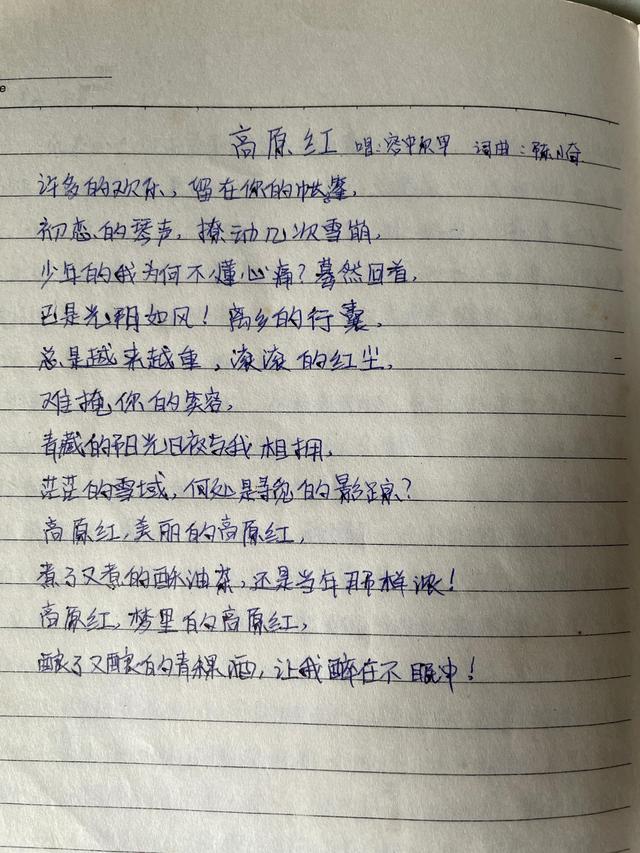 e
高原红 唱:容中尔甲 词曲:陈小奇
许多的欢乐,留在你的帐篷,
初恋的琴声,撩动几次雪崩,
少年的我为何不懂心痛?蓦然回首,
已是光阴如风!离乡的行囊,
总是越来越重,滚滚的红尘,
难掩你的笑容,
青藏的阳光日夜与我相拥,
茫茫的雪域,何处是寻觅的影踪?
高原红,美丽的高原红,
煮了又煮的酥油茶,还是当年那样浓!
高原红,梦里的高原红,
酿了又酿的青稞酒,让我醉在不眠中!